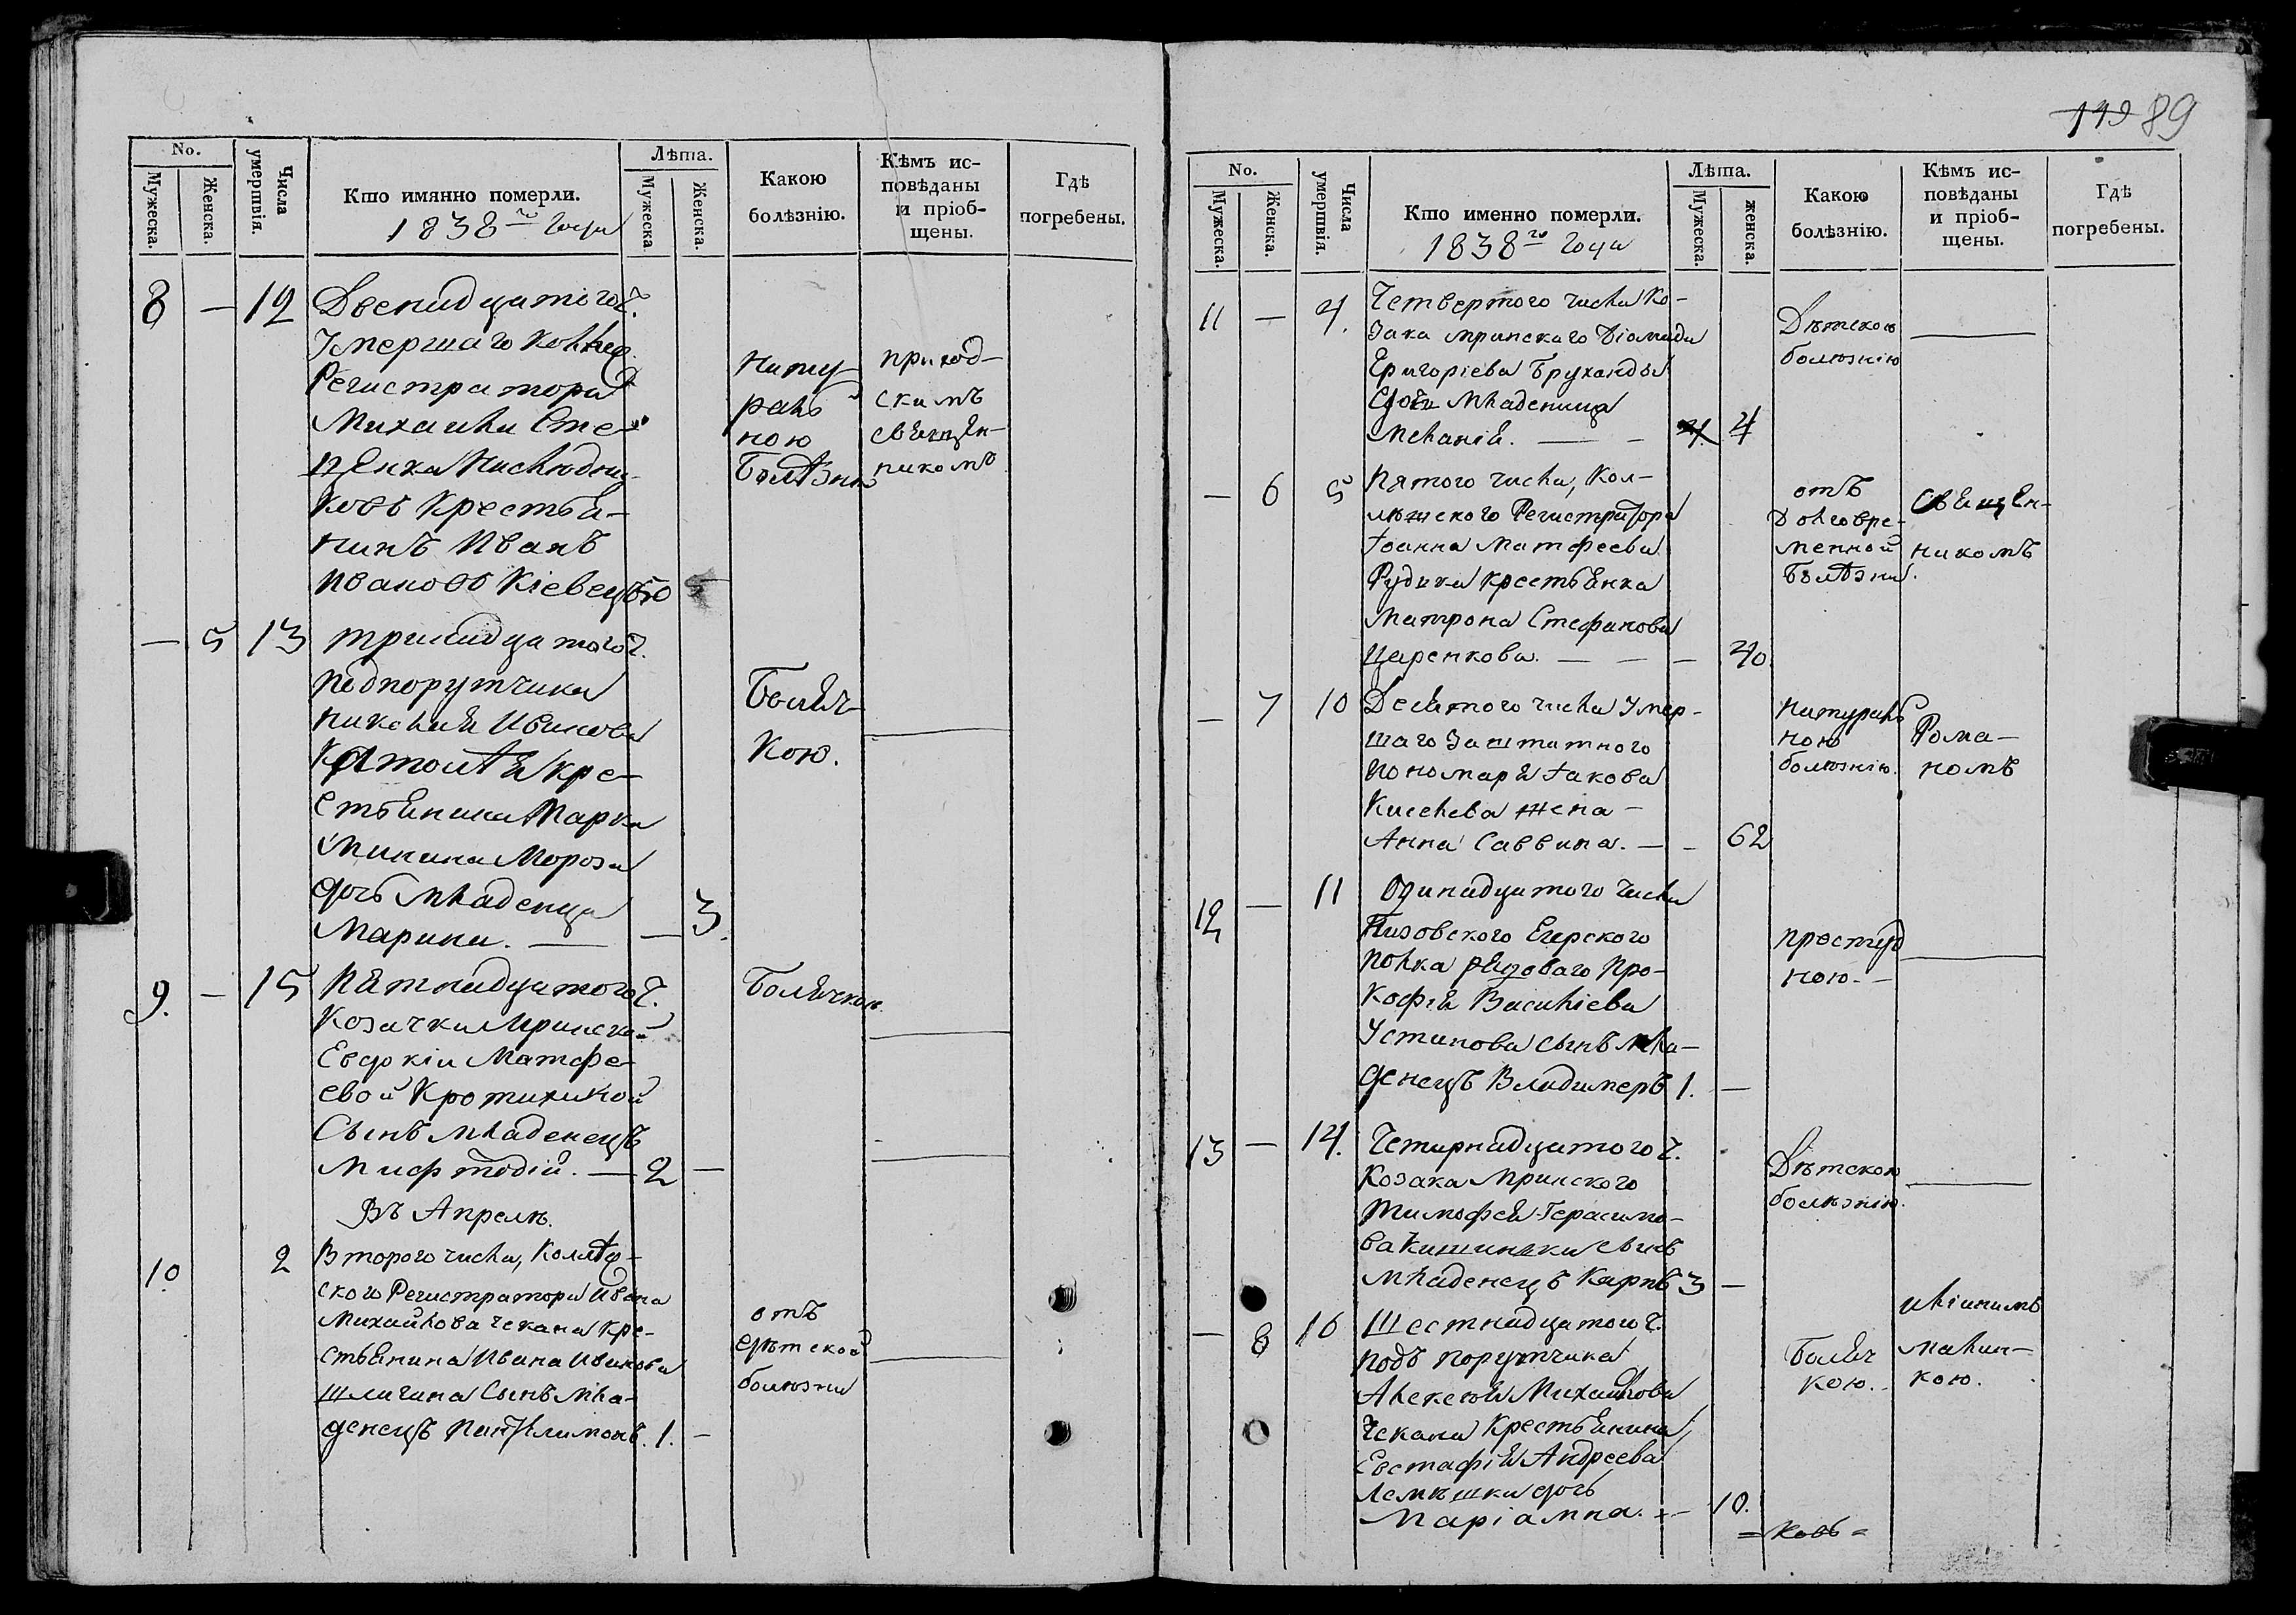 No.
Мужеска.
Женска.
Числа умертвія.
Кто имянно померли.
1838го Года
Лѣта.
Мужеска
Женска.
Какою
болѣзнію.
Кѣмъ ис-
повѣданы
и пріоб-
щены.
Гдѣ
погребены.
8 — 12 Двенадцатого Ч.
Умершаго Коллеж.
Регистратора
Михаила Сте-
ценка Наслѣдни-
ковъ Крестья-
нинъ Иванъ
Ивановъ Кіевецъ
нату-
раль
ною
Болѣзнію
приход-
скимъ
священ-
никомъ
— 5 13 тринадцатого Ч.
подпорутчика
николая Иванова
кре-
стьянина Марка
Минина Мороза
дочь младенца
Марина. — — 3.
Боляч-
кою.
9. — 15 пятнадцатого Ч.
Козачки Мринской
Евдокіи Матфе-
евой Кротихиной
Сынъ младенецъ
Мифтодій. — 2 —
Болячкою
Въ Апрелѣ.
10 2 Второго числа, Коллеж-
ского Регистратора Ивана
Михайлова Чекана Кре-
стьянина Ивана Иванова
Шличина Сынъ мла-
денецъ Пантелимонъ. 1. —
отъ
дѣтской
болѣзни
119 89
No.
Мужеска.
Женска.
Числа умертвія.
Кто именно померли.
1838го Года
Лѣта.
Мужеска.
женска.
Какою
болѣзнію.
Кѣмъ ис-
повѣданы
и пріоб-
щены.
Гдѣ
погребены.
11 — 4. Четвертого числа Ко-
зака мринского Діомида
Григоріева Бруханды
Дочь Младеница
Меланія. — — 4
Дѣтскою
болѣзнію
— 6 5 Пятого числа, Кол-
лежского Регистратора
Іоанна Матфеева
Рудика крестьянка
Матрона Стефанова
Царенкова. — — — 40
отъ
Долговре-
менной
Болѣзни.
Священ-
никомъ
— 7 10 Десятого числа Умер-
шаго Заштатного
Пономаря Іакова
Киселева жена —
Анна Саввина. — — 62
натураль
ною
болѣзнію.
Рома-
номъ
12 — 11 Одинадцатого числа
Низовского Егерского
полка рядоваго Про-
кофія Василіева
Устинова сынъ мла-
денецъ Владимеръ 1. —
простуд
ною. —
13 — 14. Четырнадцатого Ч.
Козака Мринского
Тимофея Герасимо-
ва Кишинки сынъ
младенецъ Карпъ 3 —
Дѣтскою
болѣзнію.
— 8 16 Шестнадцатого Ч.
подъ порутчика
Алексѣя Михайлова
Чекана Крестьянина
Евстафія Андреева
Лемѣшки дочь
Маріамна. — — 10.
Боляч
кою.
кою.
= ковъ =